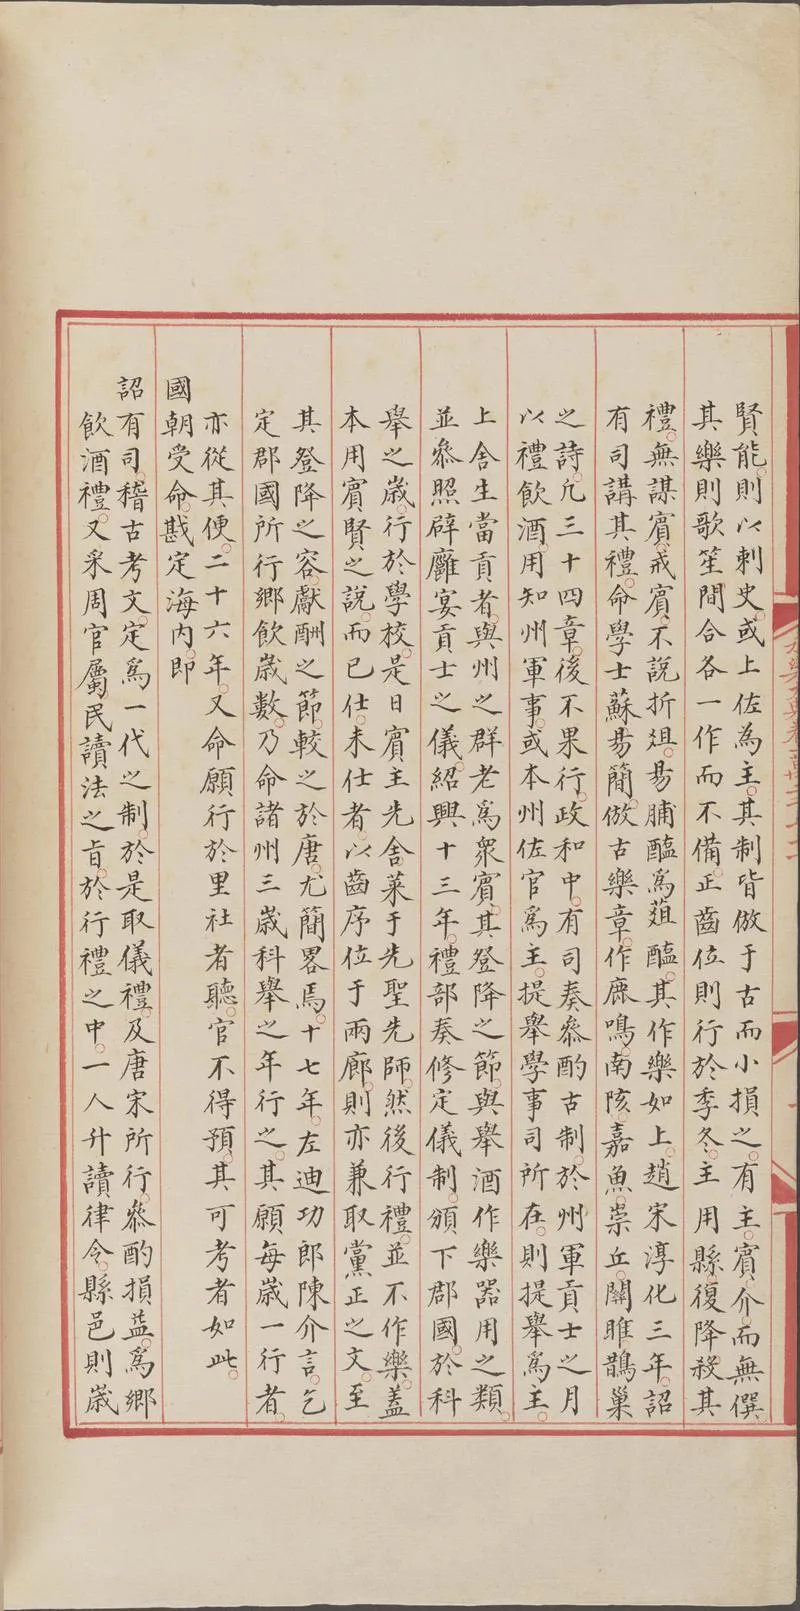 賢能。則以刺史。或上佐為主。其制皆倣于古而小損之。有主。賓。介。而無僎
其樂則歌笙間合各一作而不備。正齒位則行於季冬。主用縣。復降殺其
禮。無謀賓。戒賓。不說折俎。易脯醢為葅醢。其作樂如上。趙宋淳化三年。詔
有司講其禮。命學士蘇易簡。倣古樂章。作鹿鳴。南陔。嘉魚。崇丘。關雎。鵲巢
之詩。凡三十四章。後不果行。政和中。有司奏叅酌古制。於州軍貢士之月
以禮飲酒。用知州軍事。或本州佐官爲主。提舉學事司所在。則提舉爲主。
上舍生當貢者。與州之群老爲衆賓。其登降之節。與舉酒作樂器用之類。
並叅照辟廱宴貢士之儀。紹興十三年。禮部奏修定儀制。頒下郡國。於科
舉之歲。行於學校。是日賓主先舍菜于先聖先師。然後行禮。並不作樂。蓋
本用賓賢之說。而已仕。未仕者。以齒序位于兩廊。則亦兼取黨正之文。至
其登降之容。獻酬之節。較之於唐。尤簡畧焉。十七年。左迪功郎陳介言。乞
定郡國所行鄉飲歲數。乃命諸州三歲科舉之年行之。其願每歲一行者。
亦從其便。二十六年。又命願行於里社者聽。官不得預。其可考者如此。
國朝受命。戡定海內。即
詔有司。稽古考文。定爲一代之制。於是取儀禮。及唐宋所行。叅酌損益。爲鄉
飲酒禮。又采周官屬民讀法之旨。於行禮之中。一人升讀律令。縣邑則歲